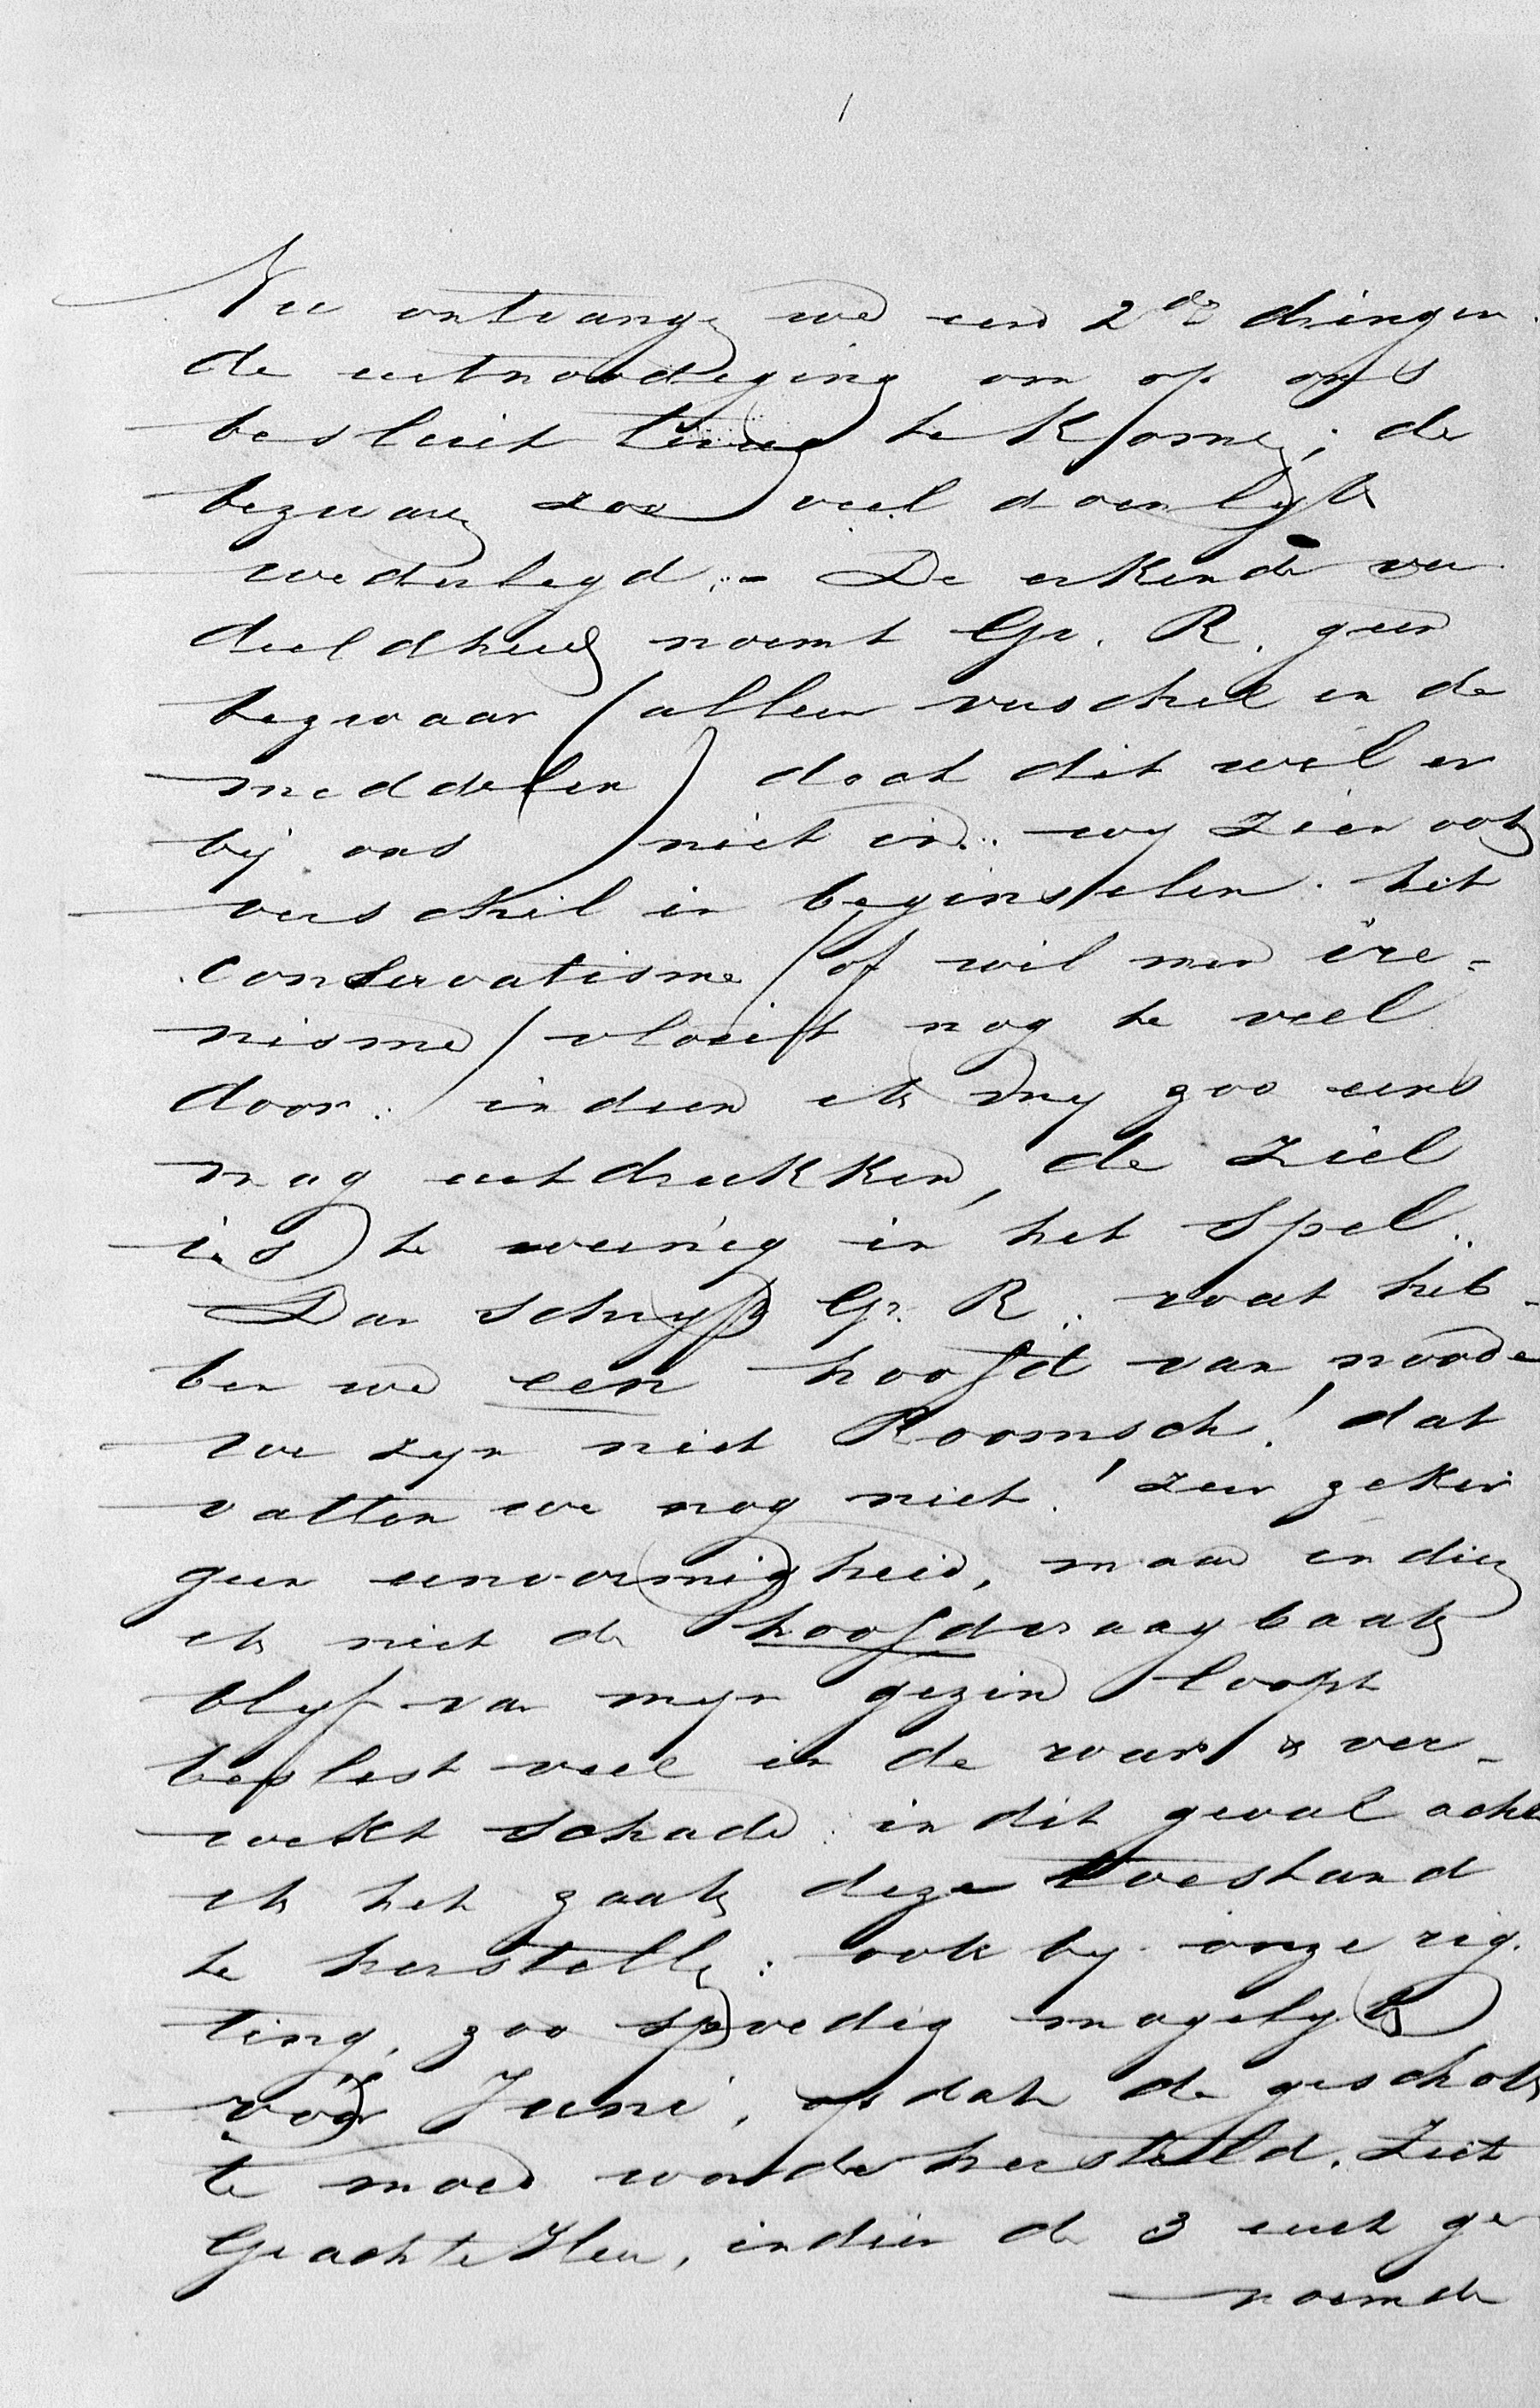 Nu ontvangen we een 2de dringen-
de uitnoodiging om op ons
besluit terug te Komen; de
bezwaren zoo veel doenlijk
wederlegd. - De erkende ver-
deeldheid noemt Gr. R. geen
bezwaar (alleen verschil in de
middelen) doch dit wil er
bij ons niet in. wy zien ook
verschil in beginselen. het
conservatisme (of wil men ire-
nisme) vloeit nog te veel
door. indien ik my zoo eens
mag uitdrukken, de ziel
is te weinig in het spel.
Dan schryft Gr. R. wat heb-
ben we een hoofd van noode
we zyn niet Roomsch! dat
vatten we nog niet! zeer zeker
geen eenvormigheid, maar indien
ik niet de hoofdvraagbaak
blyf van myn gezin loopt
beslist veel in de war & ver-
wekt schade. in dit geval acht
ik het zaak deze toestand
te herstellen: ook by onze rig-
ting, zoo spoedig mogelyk
vóór Juni, opdat de geschok-
te moed worde hersteld. Ziet
Geachte Heer, indien de 3 uit ge-
noemde